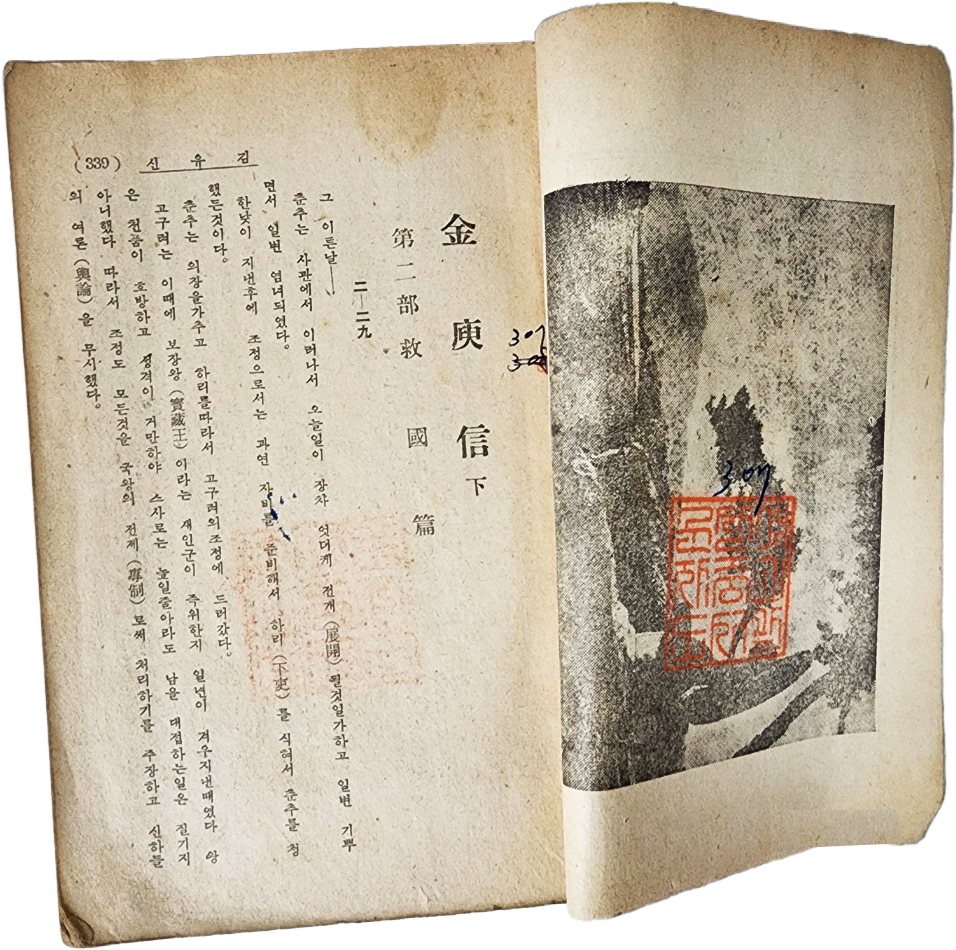 金庾信 下
第二部 救國篇
二—二九
그 이튼날——
춘추는 사관에서 이러나서 오늘일이 장차 엇더케 전개(展開)될것일가하고 일변 기뿌
면서 일변 염녀되였다.
한낮이 지낸후에 조정으로서는 과연 자비를 준비해서 하리(下吏)를 식혀서 춘추를 청
했든것이다.
춘추는 의장을가추고 하리를따라서 고구려의조정에 드러갔다.
고구려는 이때에 보장왕(寶藏王)이라는 새인군이 즉위한지 일년이 겨우지낸때였다 왕
은 천품이 호방하고 성격이 거만하야 스사로는 높일줄아라도 남을 대접하는일은 질기지
아니했다 따라서 조정도 모든것을 국왕의 전제(專制)로써 처리하기를 주장하고 신하들
의 여론(輿論)을 무시했다.
김유신 (339)
307
307